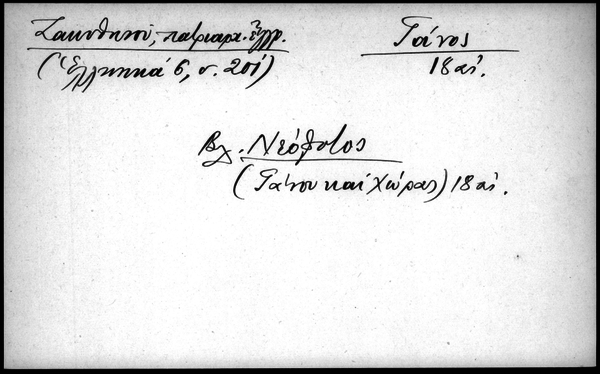 Ζακυθηνοῦ, πατριαρχ. ἔγγρ.
(Ἑλληνικά 6, σ. 201)
Γάνος
18 αἰ.
Βλ. Νεόφυτος
(Γάνου καὶ Χώρας) 18 αἰ.